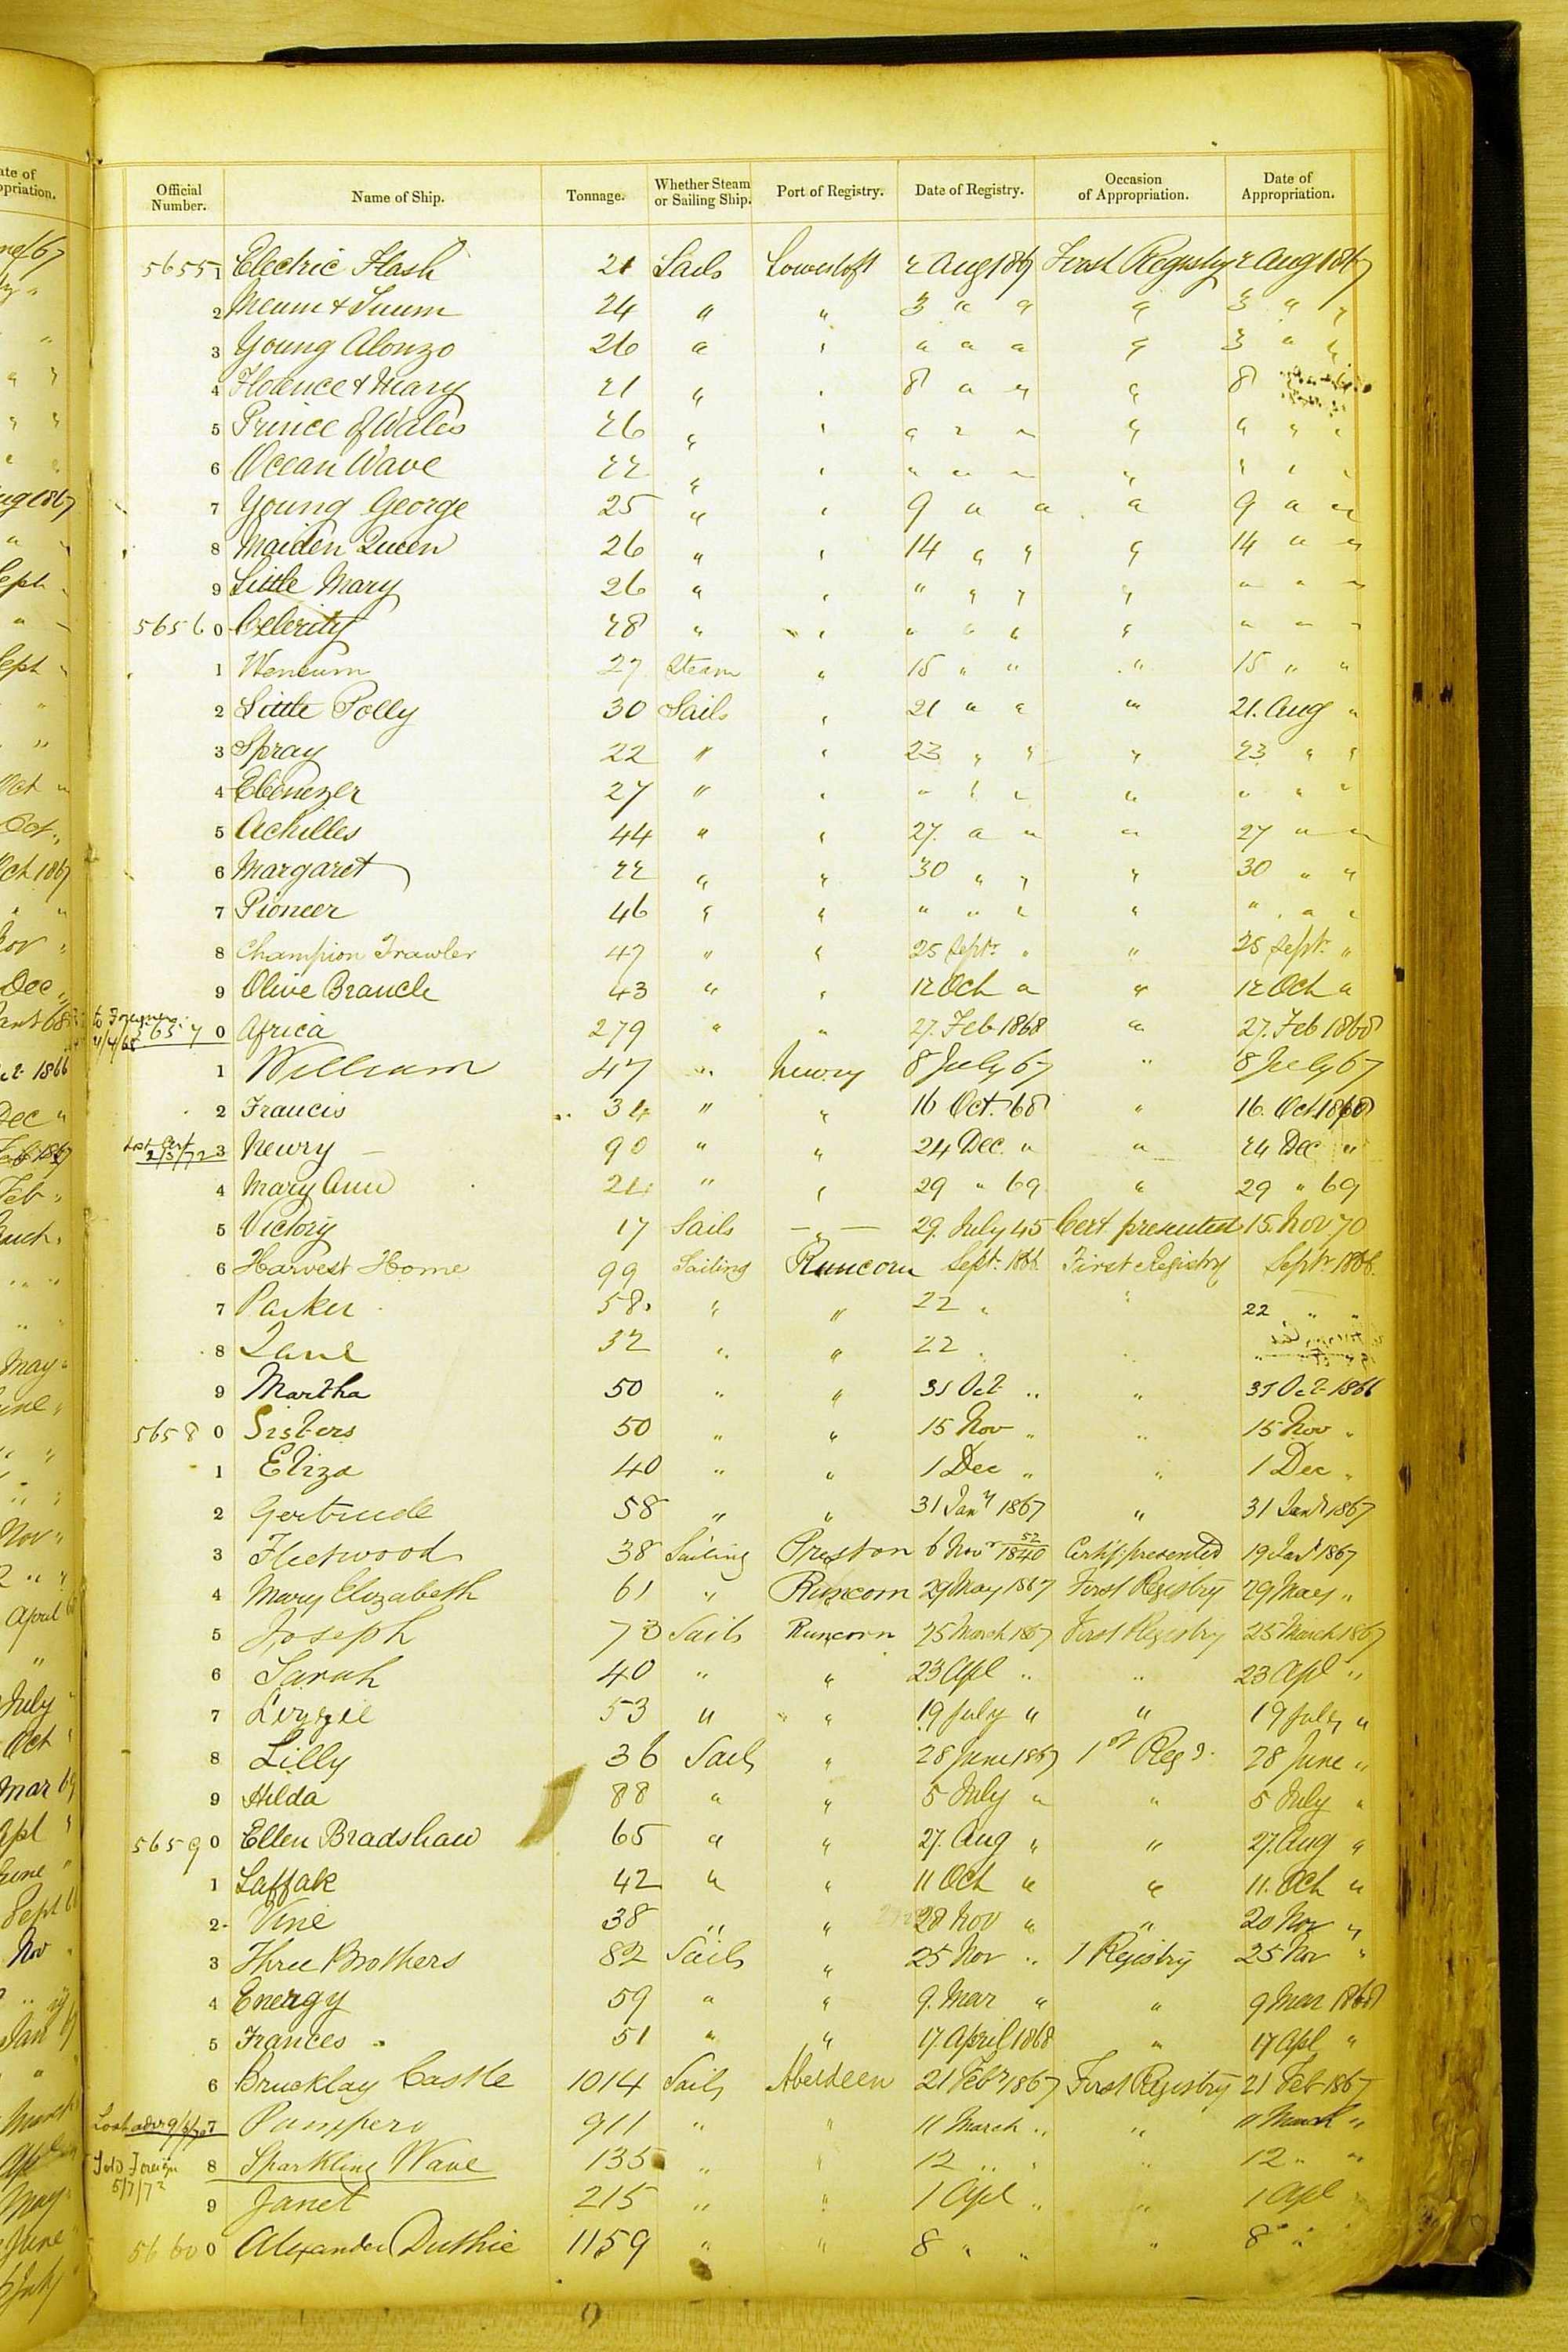 Official Number. Name of Ship. Tonnage. Whether Steam or Sailing Ship. Port of Registry. Date of Registry. Occasion of Appropriation. Date of Appropriation.
56551 Electric Flash 21 Sails Lowestoft 2 Aug 1867 First Registry 2 Aug 1867
2 Meum & Tuum 24 " " 3 " " " 3 " "
3 Young Alonzo 26 " " " " " " 3 " "
4 Florence & Mary 21 " " 8 " " " 8
5 Prince of Wales 26 " " " " " " " " "
6 Ocean Wave 22 " " " " " " " " "
7 Young George 25 " " 9 " " " 9 " "
8 Maiden Queen 26 " " 14 " " " 14 " "
9 Little Mary 26 " " " " " " " " "
56560 Celerity 28 " " " " " " " " "
1 Wensum 27 Steam " 15 " " " 15 " "
2 Little Polly 30 Sails " 21 " " " 21. Aug "
3 Spray 22 " " 23 " " " 23 " "
4 Ebenezer 27 " " " " " " " " "
5 Achilles 44 " " 27. " " " 27 " "
6 Margaret 22 " " 30 " " " 30 " "
7 Pioneer 46 " " " " " " " " "
8 Champion Trawler 47 " " 25 Septr " " 25 Septr "
9 Olive Branch 43 " " 12 Oct " " 12 Oct "
to Foreigners 21/4/68 56570 Africa 279 " " 27. Feb 1868 " 27. Feb 1868
1 William 47 " Newry 8 July 67 " 8 July 67
2 Francis 34 " " 16 Oct. 68 " 16. Oct 1868
2/3/72 3 Newry 90 " " 24 Dec. " " 24 Dec "
4 Mary Ann 21 " " 29 " 69 " 29 " 69
5 Victory 17 Sails — " — 29. July 45 Cert presented 15. Nov. 70
6 Harvest Home 99 Sailing Runcorn Septr. 1866 First Registry Septr 1866.
7 Parker 58. " " 22 " " 22 " "
8 Jane 32 " " 22 " "
9 Martha 50 " " 31 Oct " " 31 Oct 1866
56580 Sisters 50 " " 15 Nov " " 15 Nov "
1 Eliza 40 " " 1 Dec " " 1 Dec "
2 Gertrude 58 " " 31 Jany 1867 " 31 Jany 1867
3 Fleetwood 38 Sailing Preston 6 Novr 52/1840 Certif: presented 19 Jany 1867
4 Mary Elizabeth 61 " Runcorn 29 May 1867 First Registry 29 May "
5 Joseph 73 Sails Runcorn 25 March 1867 First Registry 25 March 1867
6 Sarah 40 " " 23 Apl " " 23 Apl "
7 Lizzie 53 " " 19 July " " 19 July "
8 Lilly 36 Sails " 28 June 1867 1st Reg. 28 June "
9 Hilda 88 " " 5 July " " 5 July "
56590 Ellen Bradshaw 65 " " 27. Aug " " 27. Aug "
1 Laffak 42 " " 11 Oct " " 11. Oct "
2 Vine 38 " " 20 Nov " " 20 Nov "
3 Three Brothers 82 Sails " 25 Nov " 1 Registry 25 Nov "
4 Energy 59 " " 9. Mar " " 9 Mar 1868
5 Frances 51 " " 17. April 1868 " 17 Apl "
6 Brucklay Castle 1014 Sails Aberdeen 21 Feby 1867 First Registry 21 Feb 1867
7 Pampero 911 " " 11 March " " 11 March "
Sold Foreign 5/7/72 8 Sparkling Wave 135 " " 12 " " " 12 " "
9 Janet 215 " " 1 Apl " " 1 Apl
56600 Alexander Duthie 1159 " " 8 " " " 8 "